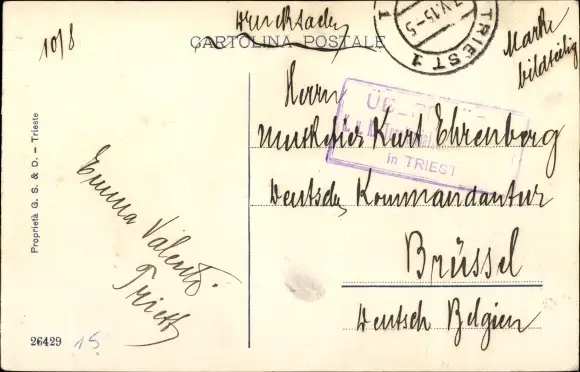 10/8
Drucksache
CARTOLINA POSTALE
TRIEST 1
V.15-5
1
Marke
bildseitig
Herrn
ÜB
Musketier Kurt Ehrenberg
in TRIEST
Deutsche Kommandantur
Brüssel
Deutsch Belgien
Emma Valenti
Triest
Proprietà G. S. & D. – Trieste
26429
15